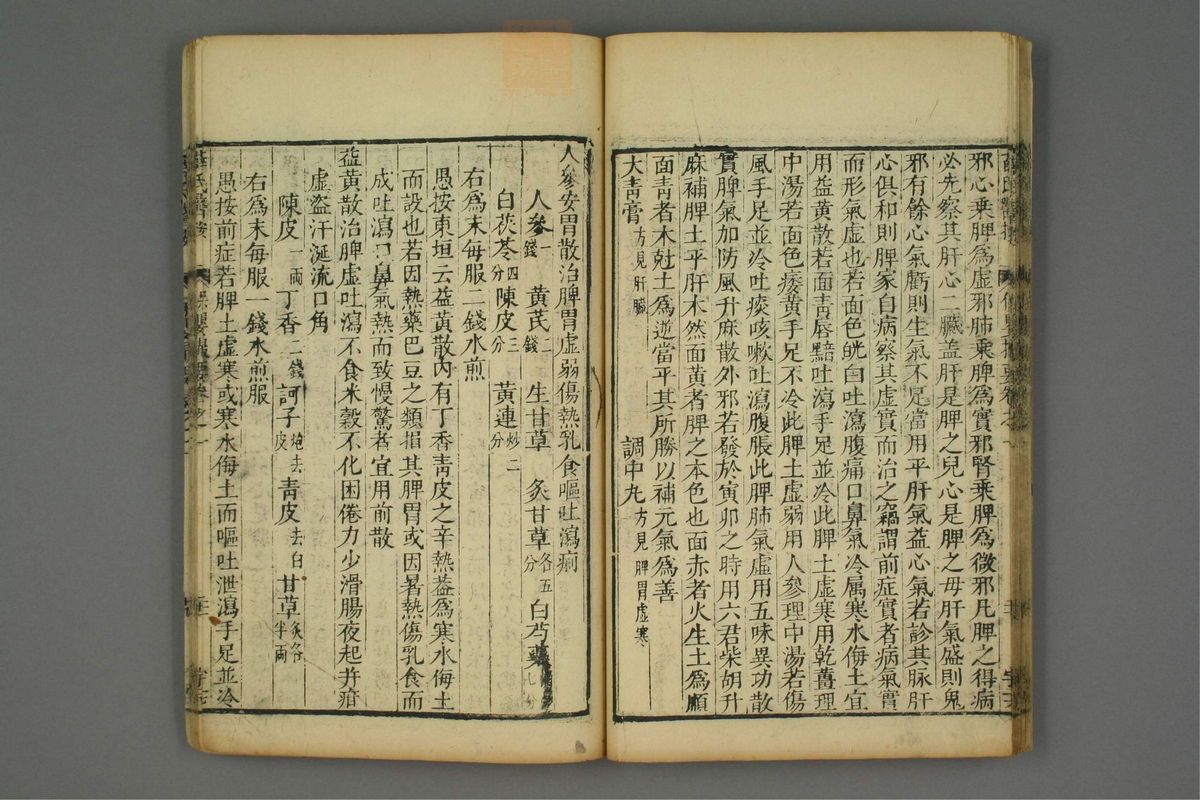 邪心乗脾爲虚邪肺乗脾爲實邪腎乗脾爲微邪凡脾之得病
必先察其肝心二臟盖肝是脾之鬼心是脾之母肝氣盛則鬼
邪有餘心氣虧則生氣不足當用平肝氣益心氣若診其脉肝
心俱和則脾家自病察其虚實而治之竊謂前症實者病氣實
而形氣虚也若面色㿠白吐瀉腹痛口鼻氣冷属寒水侮土宜
用益黄散若面青唇黯吐瀉手足並冷此脾土虚寒用乾薑理
中湯若面色痿黄手足不冷此脾土虚弱用人參理中湯若傷
風手足並冷吐痰咳嗽吐瀉腹脹此脾肺氣虚用五味異功散
實脾氣加防風升麻散外邪若發於寅卯之時用六君柴胡升
麻補脾土平肝木然面黄者脾之本色也面赤者火生土爲順
面青者木尅土爲逆當平其所勝以補元氣爲善
大青膏 方見肝臟 調中丸 方見脾胃虚寒
人參安胃散治脾胃虚弱傷熱乳食嘔吐瀉痢
人參一錢 黄芪二錢 生甘草 炙甘草各五分 白芍藥七分
白茯苓四分 陳皮三分 黄連炒二分
右爲末每服二錢水煎
愚按東垣云益黄散内有丁香青皮之辛熱盖爲寒水侮土
而設也若因熱藥巴豆之類損其脾胃或因暑熱傷乳食而
成吐瀉口鼻氣熱而致慢驚者宜用前散
益黄散治脾虚吐瀉不食米穀不化困倦力少滑腸夜起并疳
虚盗汗涎流口角
陳皮一兩 丁香二錢 訶子炮去皮 青皮去白 甘草炙各半兩
右爲末每服一錢水煎服
愚按前症若脾土虚寒或寒水侮土而嘔吐泄瀉手足並冷